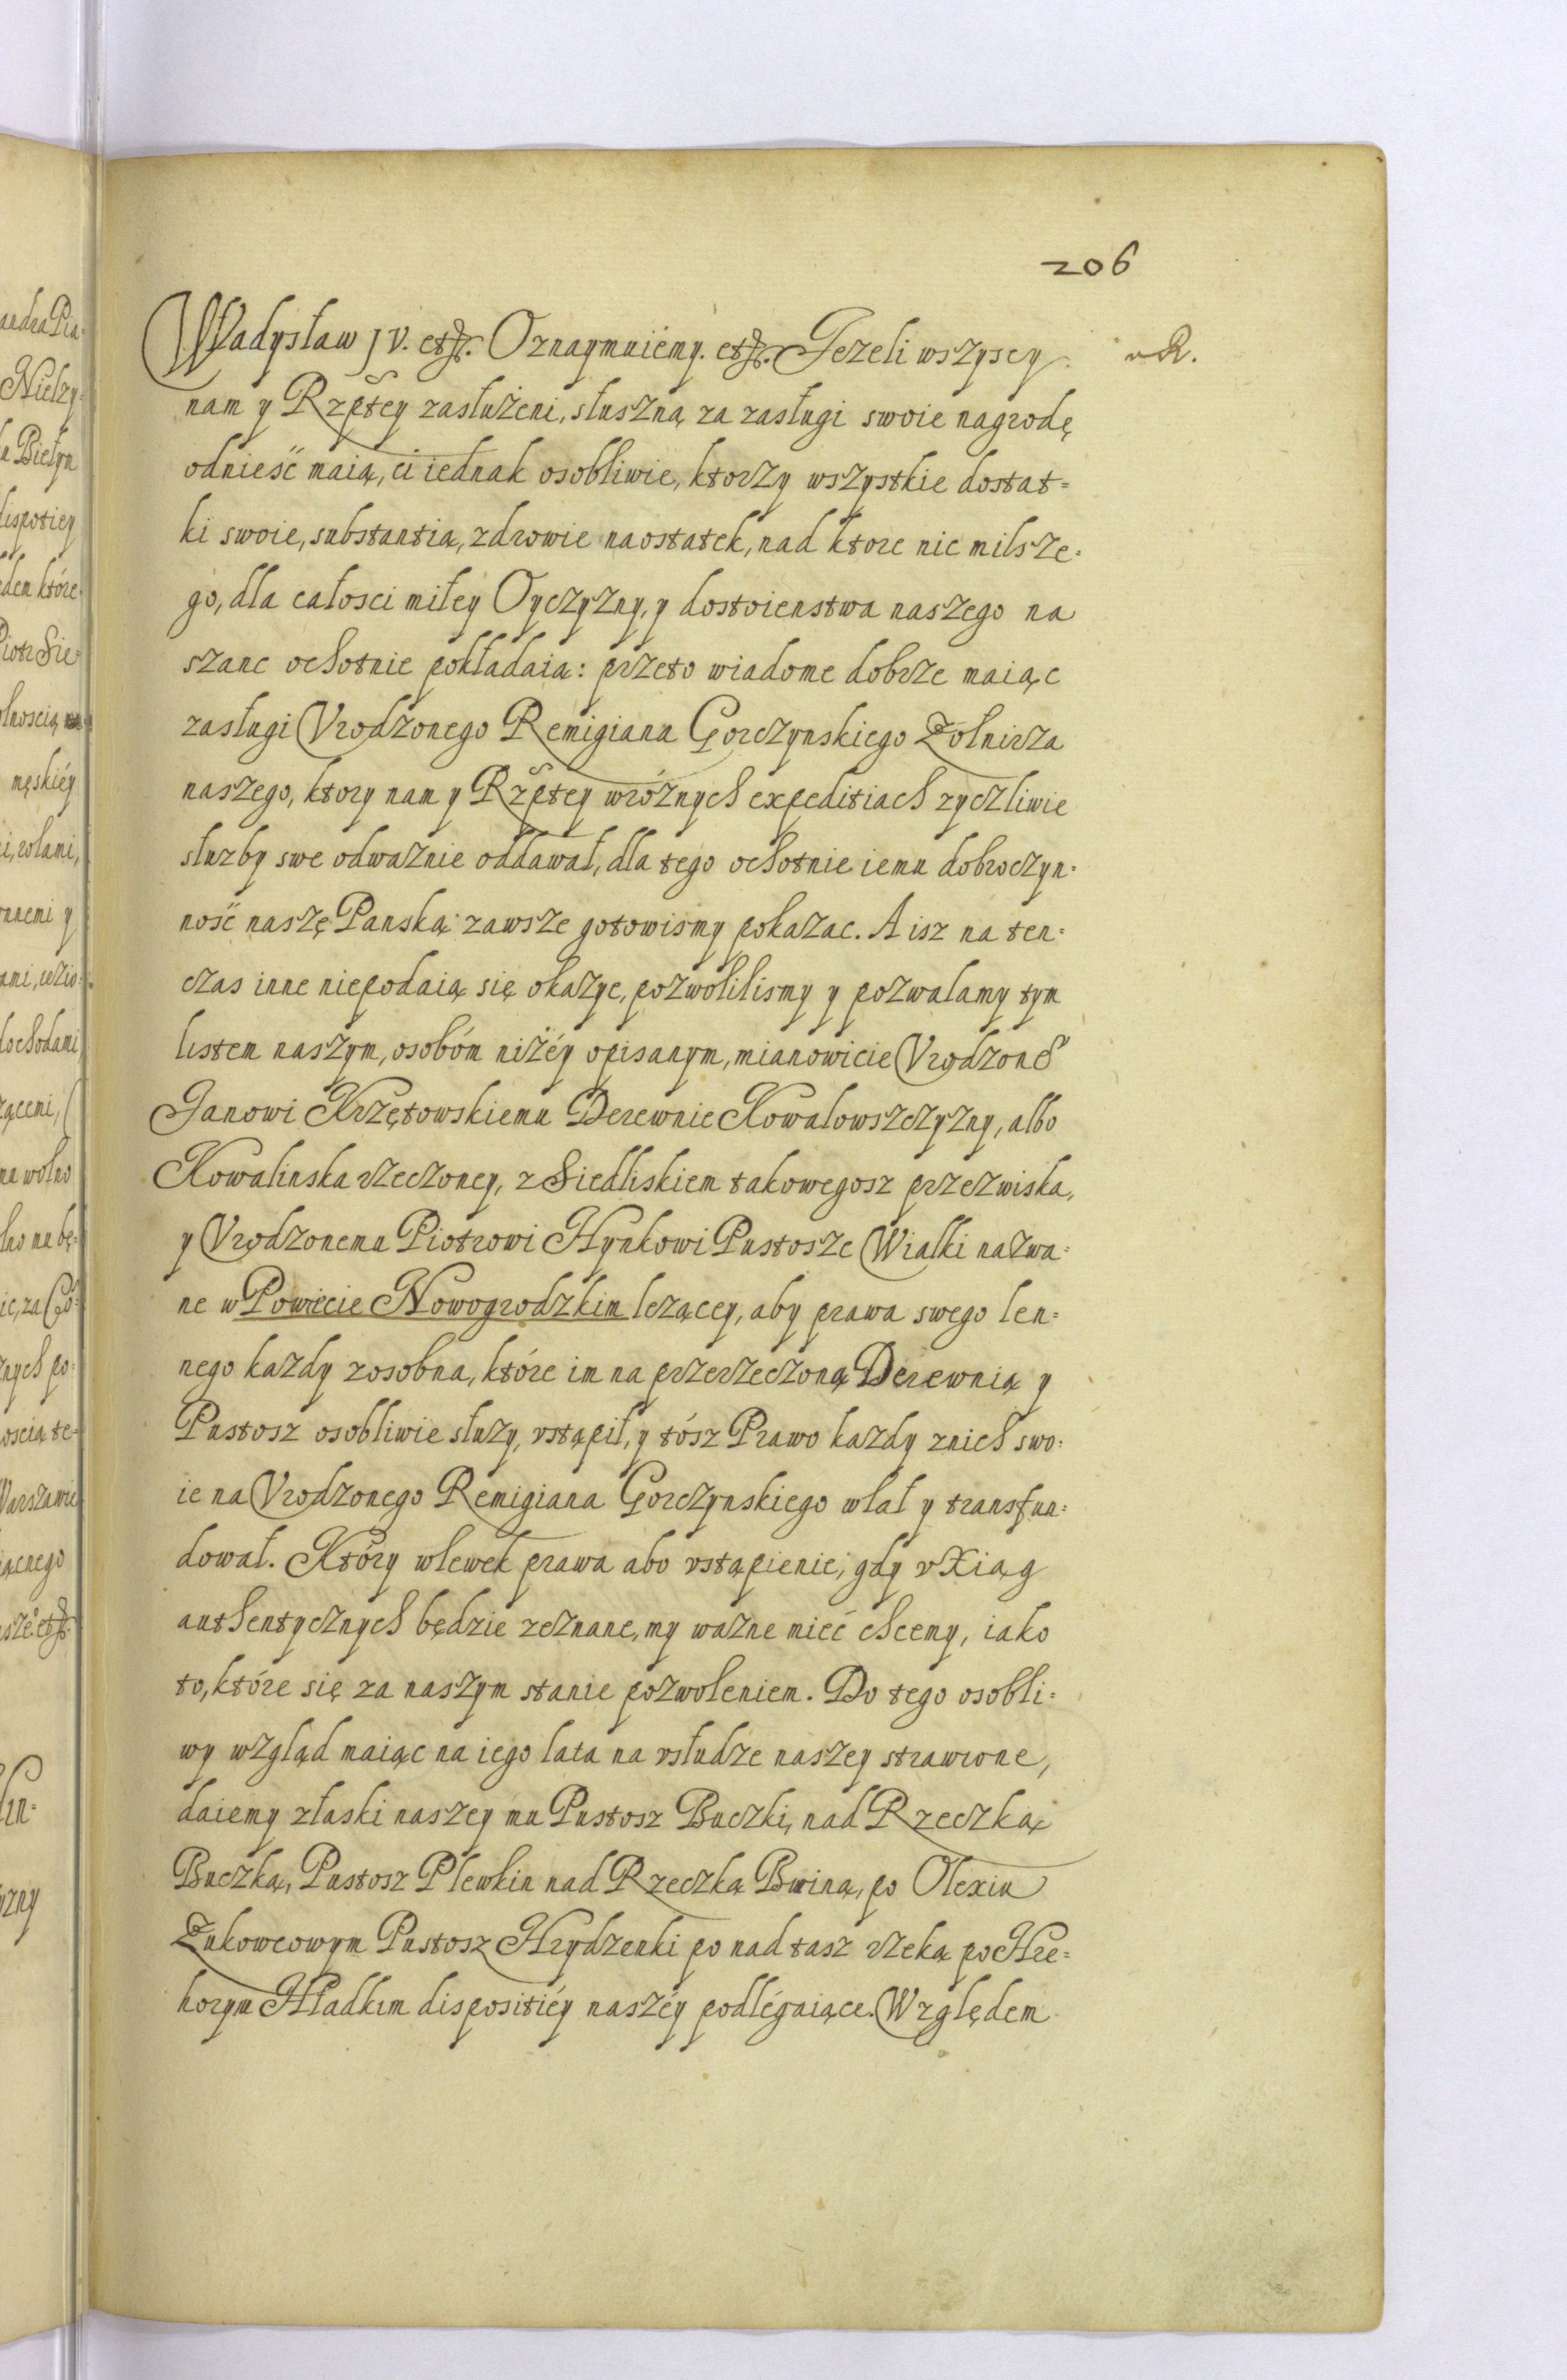 206
Władysław JV. etc. Oznaymuiémy. etc. Jezeli wszyscy
nam y Rzptey zasłużeni, słuszną za zasługi swoie nagrodę
odnieść maią, ci iednak osobliwie, ktorzy wszystkie dostat=
ki swoie, substantią, zdrowie naostatek, nad ktore nic milsze=
go, dla całosci miłey Oyczyzny, y dostoienstwa naszego na
szanc ochotnie pokładaią: przeto wiadome dobrze maiąc
zasługi Vrodzonego Remigiana Gorczynskiego Żołnirza
naszego, ktory nam y Rzptey wróżnych expeditiach zyczliwie
słuzby swe odwaznie oddawał, dla tego ochotnie iemu dobroczyn=
ność naszę Panską zawsze gotowismy pokazac. A isz na ten=
czas inne niepodaią się okazye, pozwolilismy y pozwalamy tym
listem naszym, osobóm niżéy opisanym, mianowicie Vrodzone͠
Janowi Krzętowskiemu Derewnie Kowalowszczyzny, albo
Kowalinska rzeczoney, z Siedliskiem takowegosz przezwiska,
y Vrodzonemu Piotrowi Hynkowi Pustosze Wialki nazwa=
ne w Powiecie Nowogrodzkim lezącey, aby prawa swego len=
nego kazdy zosobna, które im na przerzeczoną Derewnią y
Pustosz osobliwie słuzy, vstąpił, y tósz Prawo kazdy znich swo=
ie na Vrodzonego Remigiana Gorczynskiego wlał y transfun=
dował. Który wlewek prawa abo vstąpienie, gdy v Xiąg
authentycznych będzie zeznane, my wazne mieć chcemy, iako
to, które się za naszym stanie pozwoleniem. Do tego osobli=
wy wzgląd maiąc na iego lata na vsłudze naszey strawione,
daiemy złaski naszey mu Pustosz Buczki, nad Rzeczką
Buczką, Pustosz Plewkin nad Rzeczką Bwiną, po Olexiu
Żukowcowym Pustosz Hrydzenki po nad tasz rzeką po Hre=
horym Hładkim dispositiéy naszéy podlégaiące. Względem